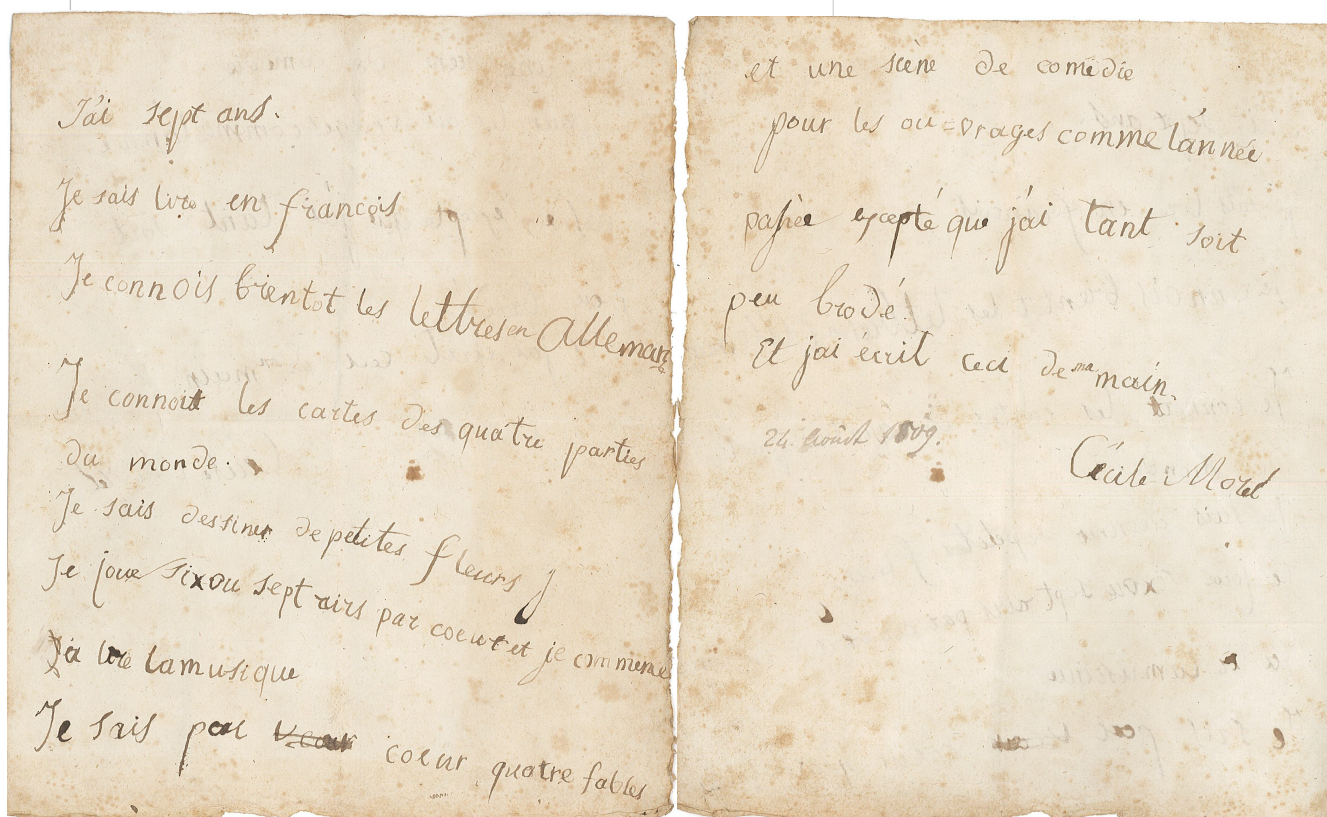 J'ai sept ans.
Je sais lire en françois
Je connois bientot les lettres en Alleman
Je connoit les cartes des quatre parties
du monde.
Je sais dessiner de petites fleurs
Je joue six ou sept airs par coeur et je commence
à lire la musique
Je sais par coeur quatre fables
et une scène de comédie
pour les ouvrages comme lannée
passée excepté que j'ai tant soit
peu brodé.
Et jai écrit ceci de ma main.
24. Août 1809.
Cécile Morel